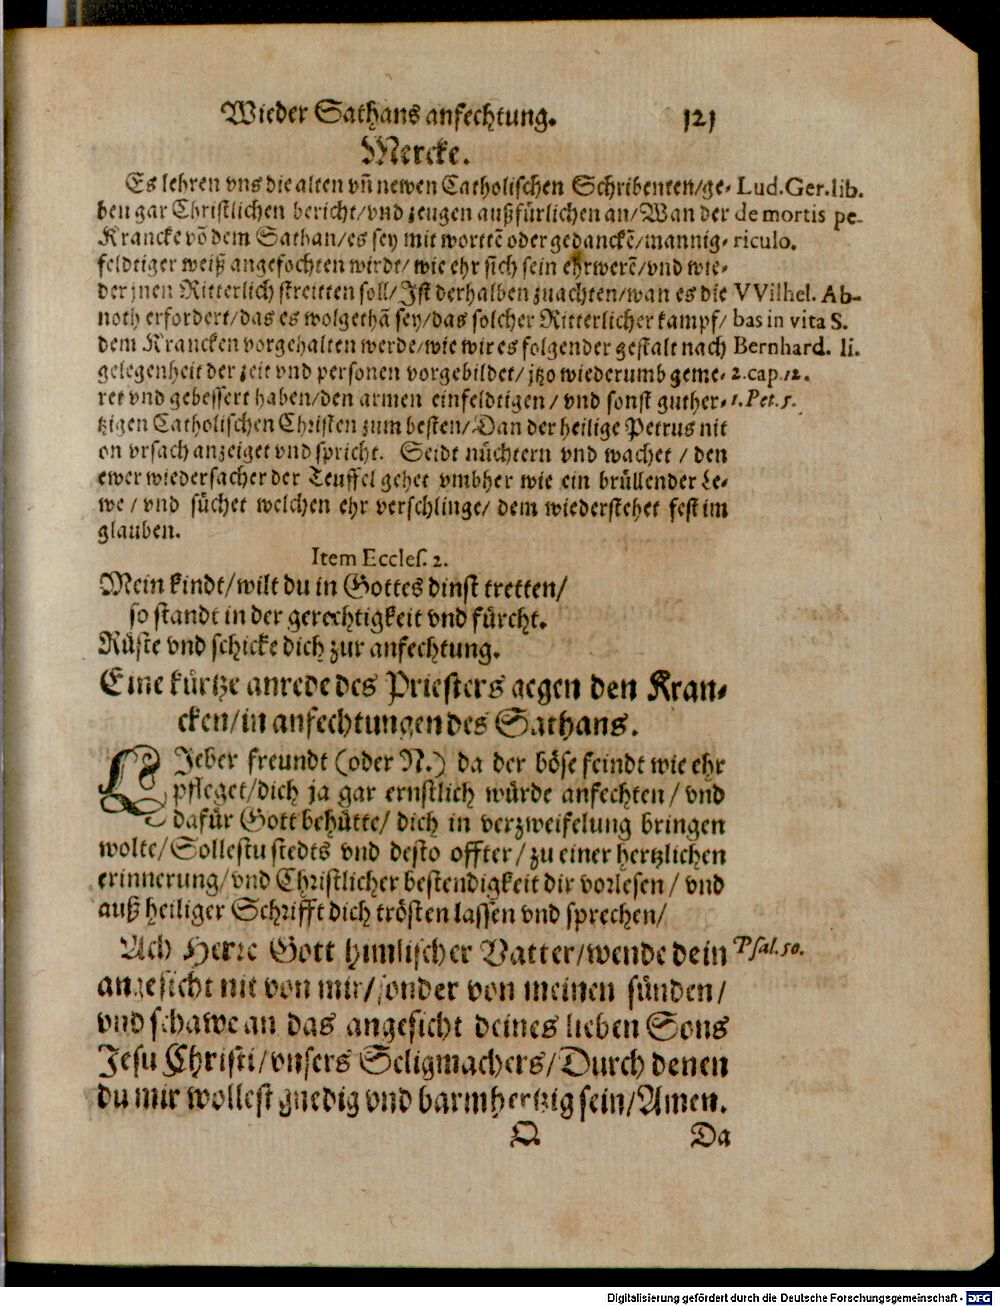 Wieder Sathans anfechtung. 121
Mercke.
Es lehren vns die alten vñ newen Catholischen Schribenten/ge-
ben gar Christlichen bericht/vnd zeugen außfürlichen an/Wan der
Krancke võ dem Sathan/es sey mit wortẽ oder gedanckẽ/mannig-
feldtiger weiß angefochten wirdt/ wie ehr sich sein ehrwerẽ/vnd wie-
der jnen Ritterlich streitten soll/Ist derhalben zuachten/wan es die
noth erfordert/das es wolgethã sey/das solcher Ritterlicher kampf/
dem Krancken vorgehalten werde/wie wir es folgender gestalt nach
gelegenheit der zeit vnd personen vorgebildet/ jtzo wiederumb geme-
ret vnd gebessert haben/den armen einfeldtigen/ vnd sonst guther-
tzigen Catholischen Christen zum besten/Dan der heilige Petrus nit
on vrsach anzeiget vnd spricht. Seidt nüchtern vnd wachet / den
ewer wiedersacher der Teuffel gehet vmbher wie ein brüllender Le-
we / vnd süchet welchen ehr verschlinge/ dem wiederstehet fest im
glauben.
Lud.Ger.lib.
de mortis pe-
riculo.
VVilhel. Ab-
bas in vita S.
Bernhard. li.
2.cap.12.
1.Pet.5.
Item Eccles. 2.
Mein kindt/wilt du in Gottes dinst tretten/
so standt in der gerechtigkeit vnd fürcht.
Rüste vnd schicke dich zur anfechtung.
Eine kürtze anrede des Priesters gegen den Kran-
cken/in anfechtungen des Sathans.
LIeber freundt (oder N.) da der böse feindt wie ehr
pfleget/dich ja gar ernstlich würde anfechten / vnd
dafür Gott behütte/ dich in verzweifelung bringen
wolte/Sollestu stedts vnd desto offter/ zu einer hertzlichen
erinnerung/vnd Christlicher bestendigkeit dir vorlesen / vnd
auß heiliger Schrifft dich trösten lassen vnd sprechen/
Ach Herre Gott himlischer Vatter/wende dein
angesicht nit von mir/sonder von meinen sünden/
vnd schawe an das angesicht deines lieben Sons
Jesu Christi/vnsers Seligmachers/Durch denen
du mir wollest gnedig vnd barmhertzig sein/Amen.
Psal.50.
Q Da
Digitalisierung gefördert durch die Deutsche Forschungsgemeinschaft - DFG